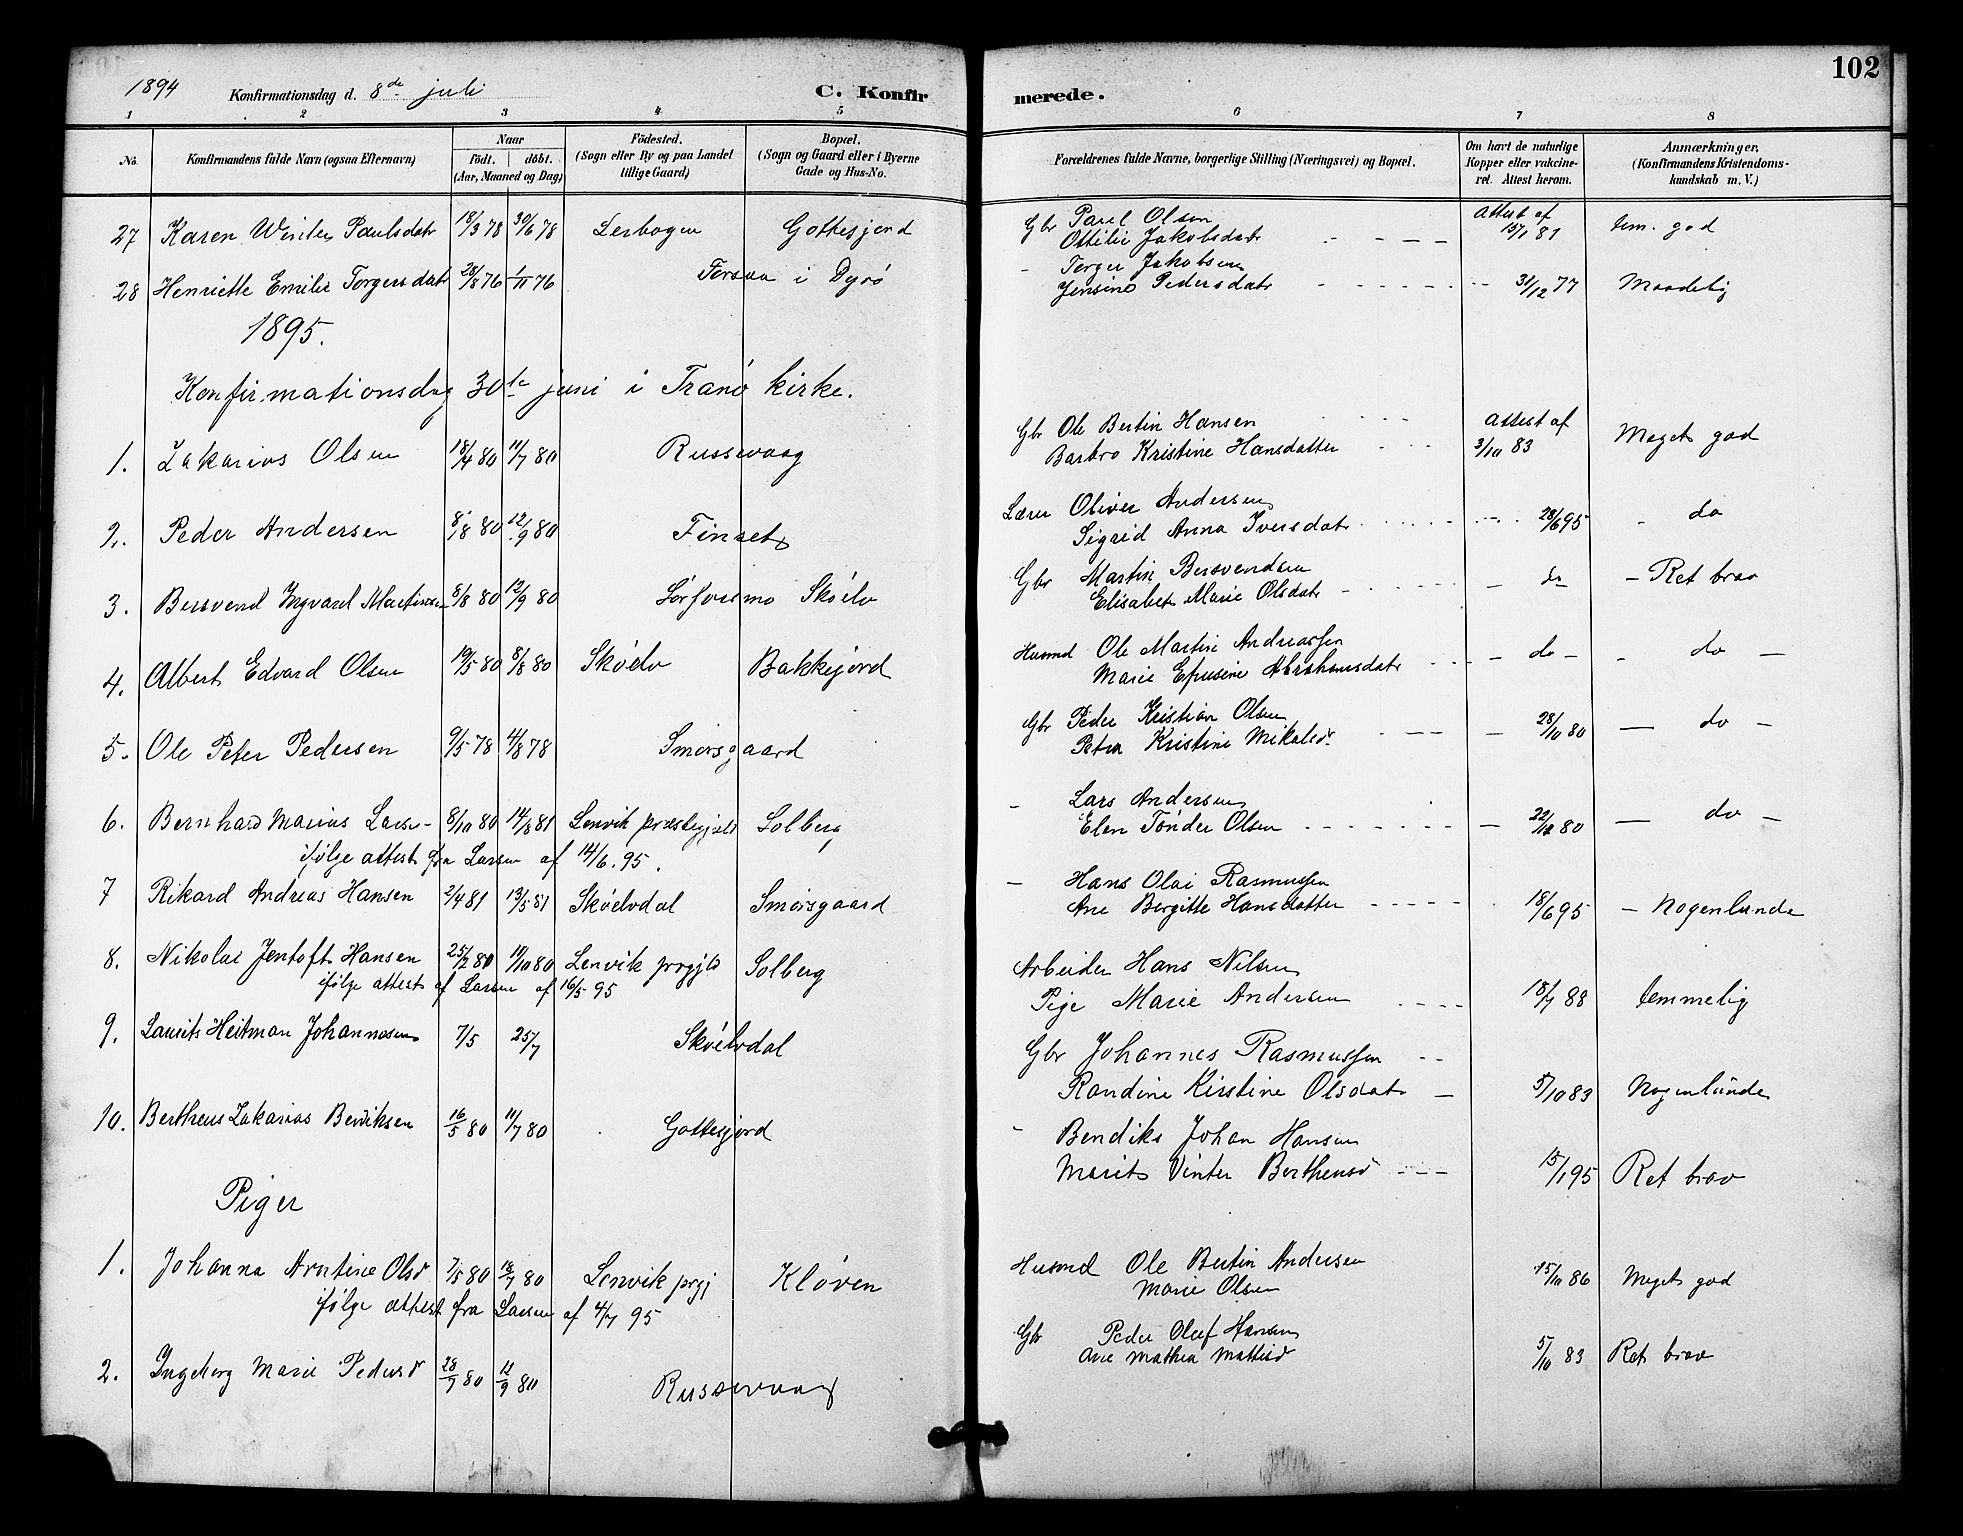 102
1894 Konfirmationsdag d. 8de juli C. Konfirmerede.
1 2 3 4 5 6 7 8
No. Konfirmandens fulde Navn (ogsaa Efternavn) Naar födt. döbt. (Aar, Maaned og Dag) Födested. (Sogn eller By og paa Landet tillige Gaard) Bopæl. (Sogn og Gaard eller i Byerne Gade og Hus-No. Forældrenes fulde Navne, borgerlige Stilling (Næringsvei) og Bopæl. Om havt de naturlige Kopper eller vakcineret. Attest herom. Anmærkninger. (Konfirmandens Kristendomskundskab m. V.)
27 Karen Winter Paulsdatr 18/3 78 30/6 78 Leibogen Gottesjord Gbr Paul Olsen Attest af tem. god
Ottilie Jakobsdatr 15/1 81
28 Henriette Emilie Torgersdatr 28/8 76 1/11 76 Forsaa i Dyrö - Torger Jakobsen
Jensine Pedersdatr 31/12 77 Maadelig
1895.
Konfirmationsdag 30te juni i Tranö kirke.
1. Zakarias Olsen 18/4 80 11/7 80 Russevaag Gbr Ole Bertin Hansen Attest af Meget god
Barbro Kristine Hansdatter 3/10 83
2. Peder Andersen 8/8 80 12/9 80 Finset Lærer Oliver Andersen
Sigrid Anna Iversdatr 28/6 95 - do
3. Bersvend Ingvard Martinsen 8/8 80 12/9 80 Sörforsmo Sköelv Gbr Martin Bersvendsen
Elisabet Marie Olsdatr - do - Ret brav
4. Albert Edvard Olsen 19/5 80 8/8 80 Sköelv Bakkejord Husmd Ole Martin Andreassen
Marie Efrusine Abrahamsdatr - do - - do -
5. Ole Peter Pedersen 9/5 78 4/8 78 Smörsgaard Gbr Peder Kristian Olsen
Petra Kristine Mikalsdr 28/10 80 - do -
6. Bernhard Marius Larsen 8/10 80 14/8 81 Lenvik præstegjeld Solberg - Lars Andersen
Elen Tönder Olsen - 22/12 80 - do -
ifölge attest fra Larsen af 14/6.95.
7 Rikard Andreas Hansen 2/4 81 13/5 81 Sköelvdal Smörsgaard - Hans Olai Rasmussen
Ane Bergitte Hansdatter 18/6 95 - Nogenlunde
8. Nikolai Jentoft Hansen 25/2 80 11/10 80 Lenvik prgjld Solberg Arbeider Hans Nilsen
ifölge attest af Larsen af 16/5 95
Pige Marie Andersen 18/7 88 temmelig
9. Laurits Heitman Johannesen 7/5 25/7 Sköelvdal Gbr Johannes Rasmussen
Randine Kirstine Olsdatr 5/10 83 Nogenlunde
10. Bertheus Zakarias Bendiksen 16/5 80 11/7 80 Gottesjord - Bendiks Johan Hansen
Marits Vinter Berthensd 15/1 95 Ret brav
Piger
1. Johanna Arntine Olsd 7/5 80 18/7 80 Lenvik prgj Klöven Husmd Ole Bertin Andersen
Marie Olsen 15/10 86 Meget god
ifölge attest fra Larsen af 4/7 95
2. Ingeborg Marie Pedersd 28/7 80 12/9 80 Russevaag Gbr Peder Oluf Hansen
Ane Mathea Mattisd 5/10 83 Ret brav